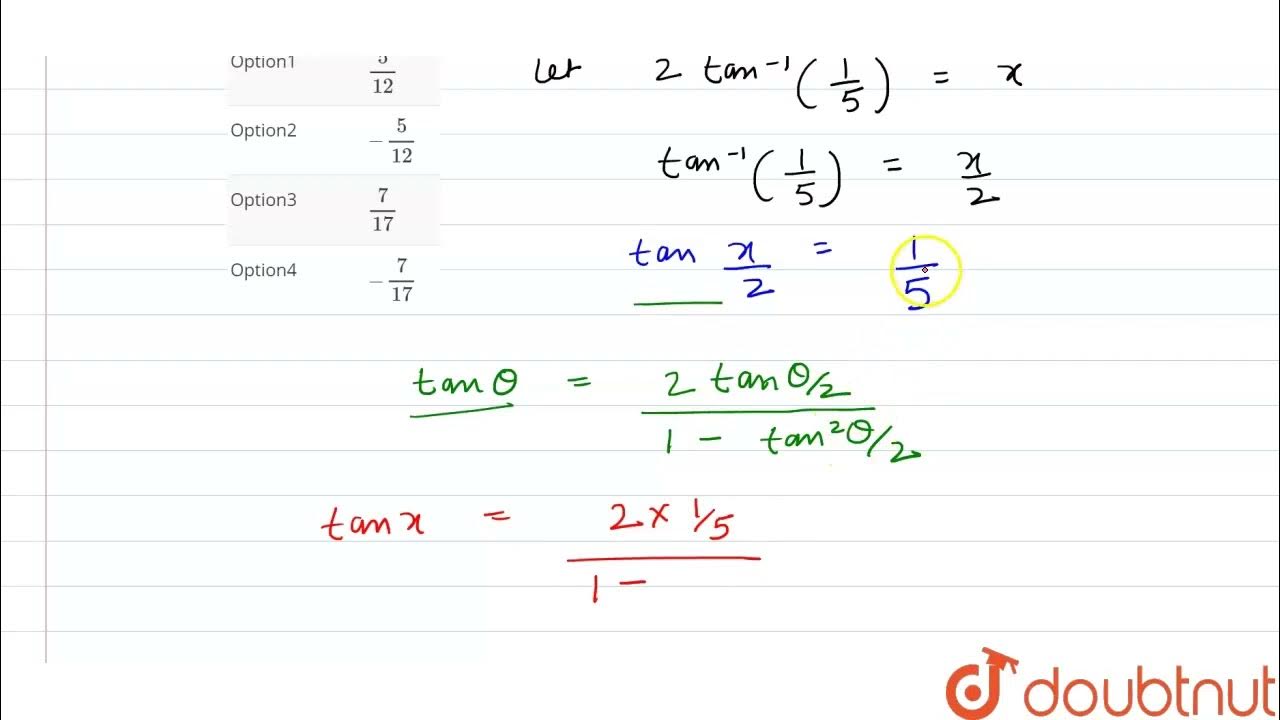 Option1 5/12
Option2 -5/12
Option3 7/17
Option4 -7/17
Let 2 tan⁻¹(1/5) = x
tan⁻¹(1/5) = x/2
tan x/2 = 1/5
tanθ = 2 tanθ/2 / 1 - tan²θ/2
tanx = 2 × 1/5 / 1 -
doubtnut